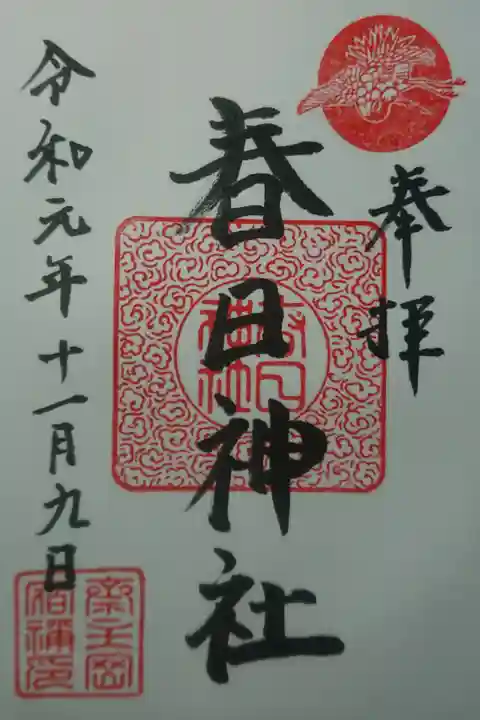 奉拝
春日神社
令和元年十一月九日
春日神社